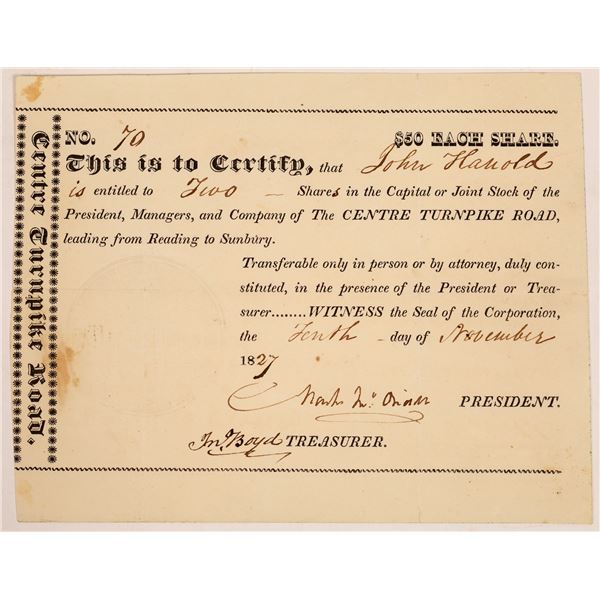 Centre Turnpike Road.
NO. 70 $50 EACH SHARE.
This is to Certify, that John Hanold
is entitled to Two Shares in the Capital or Joint Stock of the
President, Managers, and Company of The CENTRE TURNPIKE ROAD,
leading from Reading to Sunbury.
Transferable only in person or by attorney, duly con-
stituted, in the presence of the President or Trea-
surer........WITNESS the Seal of the Corporation,
the Tenth day of November
1827
PRESIDENT.
Jno Boyd TREASURER.